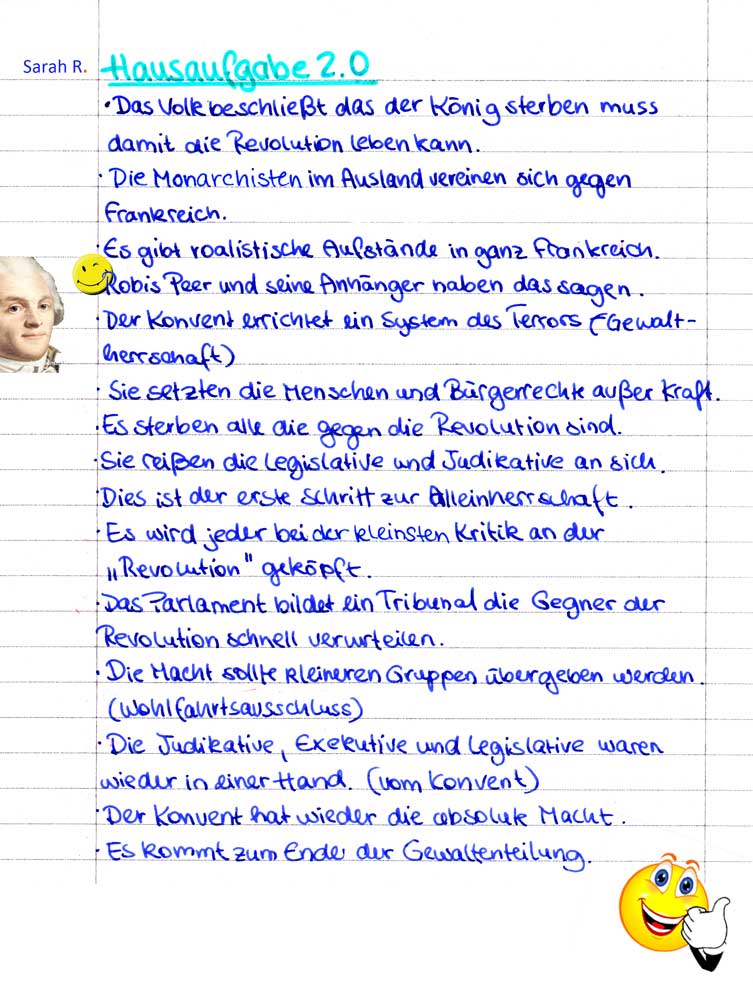 Sarah R.
Hausaufgabe 2.0
• Das Volk beschließt das der König sterben muss
damit die Revolution leben kann.
• Die Monarchisten im Ausland vereinen sich gegen
Frankreich.
• Es gibt roalistische Aufstände in ganz Frankreich.
Robis Peer und seine Anhänger haben das sagen.
• Der Konvent errichtet ein System des Terrors (Gewalt-
herrschaft)
• Sie setzten die Menschen und Bürgerrechte außer Kraft.
• Es sterben alle die gegen die Revolution sind.
• Sie reißen die Legislative und Judikative an sich.
Dies ist der erste Schritt zur Alleinherrschaft.
• Es wird jeder bei der kleinsten Kritik an der
„Revolution" geköpft.
• Das Parlament bildet ein Tribunal die Gegner der
Revolution schnell verurteilen.
• Die Macht sollte kleineren Gruppen übergeben werden.
(Wohlfahrtsausschluss)
• Die Judikative, Exekutive und Legislative waren
wieder in einer Hand. (vom Konvent)
• Der Konvent hat wieder die absolute Macht.
• Es kommt zum Ende der Gewaltenteilung.